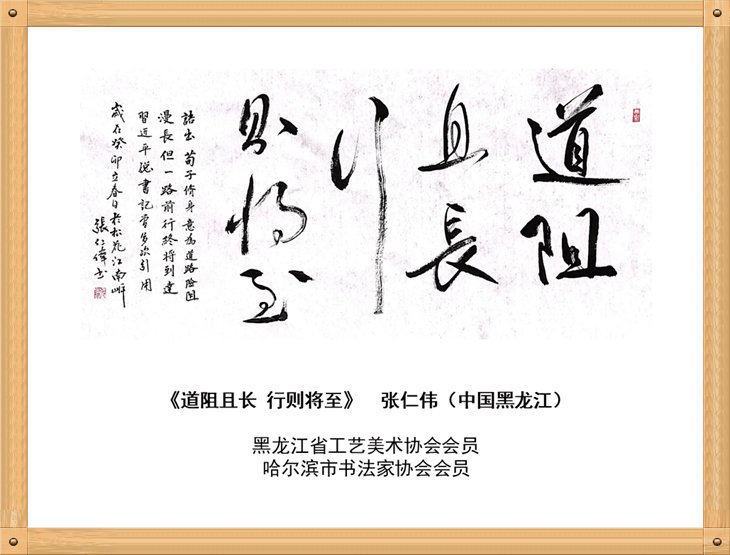 道阻
且長
行
則將至
語出荀子脩身意為道路險阻
漫長但一路前行終將到達
習近平總書記曾多次引用
歲在癸卯立春日於松花江南岸
張仁偉書
《道阻且长 行则将至》 张仁伟（中国黑龙江）
黑龙江省工艺美术协会会员
哈尔滨市书法家协会会员